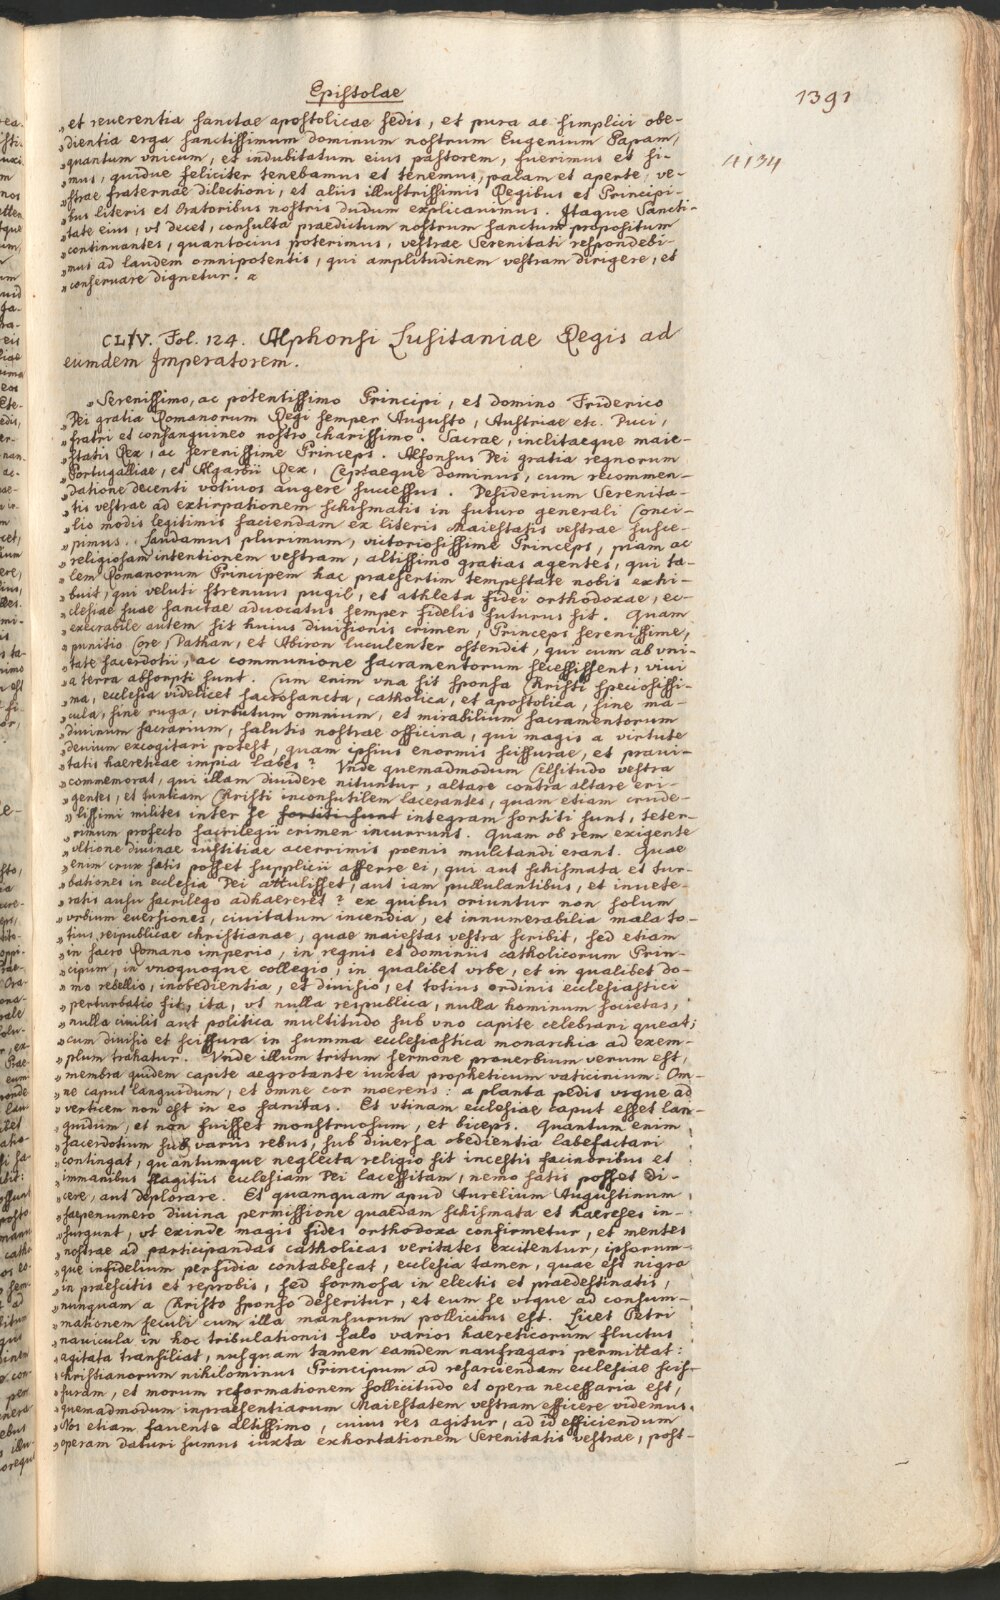 Epistolae
1391
„et reuerentia sanctae apostolicae sedis, et pura ac simplici obe-
„dientia erga sanctissimum dominum nostrum Eugenium Papam,
4134
„quantum vnicum, et indubitatum eius pastorem, fuerimus et si-
„mus, quidue feliciter tenebamus et tenemus, palam et aperte, ve-
„strae fraternae dilectioni, et aliis illustrissimis Regibus et Principi-
„bus literis et Oratoribus nostris dudum explicauimus. Itaque Sancti-
„tate eius, vt decet, consulta praedictum nostrum sanctum propositum
„continuantes, quantocius poterimus, vestrae Serenitati respondebi-
„mus ad laudem omnipotentis, qui amplitudinem vestram dirigere, et
„conseruare dignetur. a
CLIV. Fol. 124. Alphonsi Lusitaniae Regis ad
eumdem Imperatorem.
„Serenissimo, ac potentissimo Principi, et domino Friderico
„Dei gratia Romanorum Regi semper Augusto, Austriae etc. Duci,
„fratri et consanguineo nostro charissimo. Sacrae, inclitaeque maie-
„statis Rex, ac serenissime Princeps. Alfonsus Dei gratia regnorum
„Portugalliae, et Algarbii Rex, Ceptaeque dominus, cum recommen-
„datione decenti votiuos augere successus. Desiderium Serenita-
„tis vestrae ad extirpationem schismatis in futuro generali Conci-
„lio modis legitimis faciendam ex literis Maiestatis vestrae susce-
„pimus. Laudamus plurimum, victoriosissime Princeps, piam ac
„religiosam intentionem vestram, altissimo gratias agentes, qui ta-
„lem Romanorum Principem hac praesertim tempestate nobis exhi-
„buit, qui veluti strenuus pugil, et athleta fidei orthodoxae, ec-
„clesiae suae sanctae aduocatus semper fidelis futurus sit. Quam
„execrabile autem sit huius diuisionis crimen, Princeps serenissime,
„punitio Core, Dathan, et Abiron luculenter ostendit, qui cum ab vni-
„tate sacerdotii, ac communione sacramentorum secessissent, viui
„a terra absorpti sunt. Cum enim vna sit sponsa Christi speciosissi-
„ma, ecclesia videlicet sacrosancta, catholica, et apostolica, sine ma-
„cula, sine ruga, virtutum omnium, et mirabilium sacramentorum
„diuinum sacrarium, salutis nostrae officina, qui magis a virtute
„deuium excogitari potest, quam ipsius enormis scissurae, et praui-
„tatis haereticae impia labes? Vnde quemadmodum Celsitudo vestra
„commemorat, qui illam diuidere nituntur, altare contra altare eri-
„gentes, et tunicam Christi inconsutilem lacerantes, quam etiam crude-
„lissimi milites inter se sortiti sunt integram sortiti sunt, teter-
„rimum profecto sacrilegii crimen incurrunt. Quam ob rem exigente
„vltione diuinae iustitiae acerrimis poenis mulctandi erant. Quae
„enim crux satis posset supplicii afferre ei, qui aut schismata et tur-
„bationes in ecclesia Dei attulisset, aut iam pullulantibus, et inuete-
„ratis ausu sacrilego adhaereret? ex quibus oriuntur non solum
„vrbium euersiones, ciuitatum incendia, et innumerabilia mala to-
„tius reipublicae christianae, quae maiestas vestra scribit, sed etiam
„in sacro Romano imperio, in regnis et dominiis catholicorum Prin-
„cipum, in vnoquoque collegio, in qualibet vrbe, et in qualibet do-
„mo rebellio, inobedientia, et diuisio, et totius ordinis ecclesiastici
„perturbatio fit, ita, vt nulla respublica, nulla hominum societas,
„nulla ciuilis aut politica multitudo sub vno capite celebrari queat;
„cum diuisio et scissura in summa ecclesiastica monarchia ad exem-
„plum trahatur. Vnde illum tritum sermone prouerbium verum est,
„membra quidem capite aegrotante iuxta propheticum vaticinium: Om-
„ne caput languidum, et omne cor moerens: a planta pedis vsque ad
„verticem non est in eo sanitas. Et vtinam ecclesiae caput esset lan-
„guidum, et non fuisset monstruosum, et biceps. Quantum enim
„sacerdotium sub variis rebus, sub diuersa obedientia labefactari
„contingat, quantumque neglecta religio sit incestis facinoribus et
„immanibus flagitiis ecclesiam Dei lacessitam, nemo satis posset di-
„cere, aut deplorare. Et quamquam apud Aurelium Augustinum
„saepenumero diuina permissione quaedam schismata et haereses in-
„surgunt, vt exinde magis fides orthodoxa confirmetur, et mentes
„nostrae ad participandas catholicas veritates excitentur, ipsorum-
„que infidelium perfidia contabescat, ecclesia tamen, quae est nigra
„in praescitis et reprobis, sed formosa in electis et praedestinatis,
„nunquam a Christo sponso deseritur, et eum se vsque ad consum-
„mationem seculi cum illa mansurum pollicitus est. Licet Petri
„nauicula in hoc tribulationis salo varios haereticorum fluctus
„agitata transiliat, nusquam tamen eamdem naufragari permittat:
„Christianorum nihilominus Principum ad resarciendam ecclesiae scis-
„suram, et morum reformationem sollicitudo et opera necessaria est,
„quemadmodum inpraesentiarum Maiestatem vestram efficere videmus.
„Nos etiam fauente altissimo, cuius res agitur, ad id efficiendum
„operam daturi sumus iuxta exhortationem Serenitatis vestrae, post-